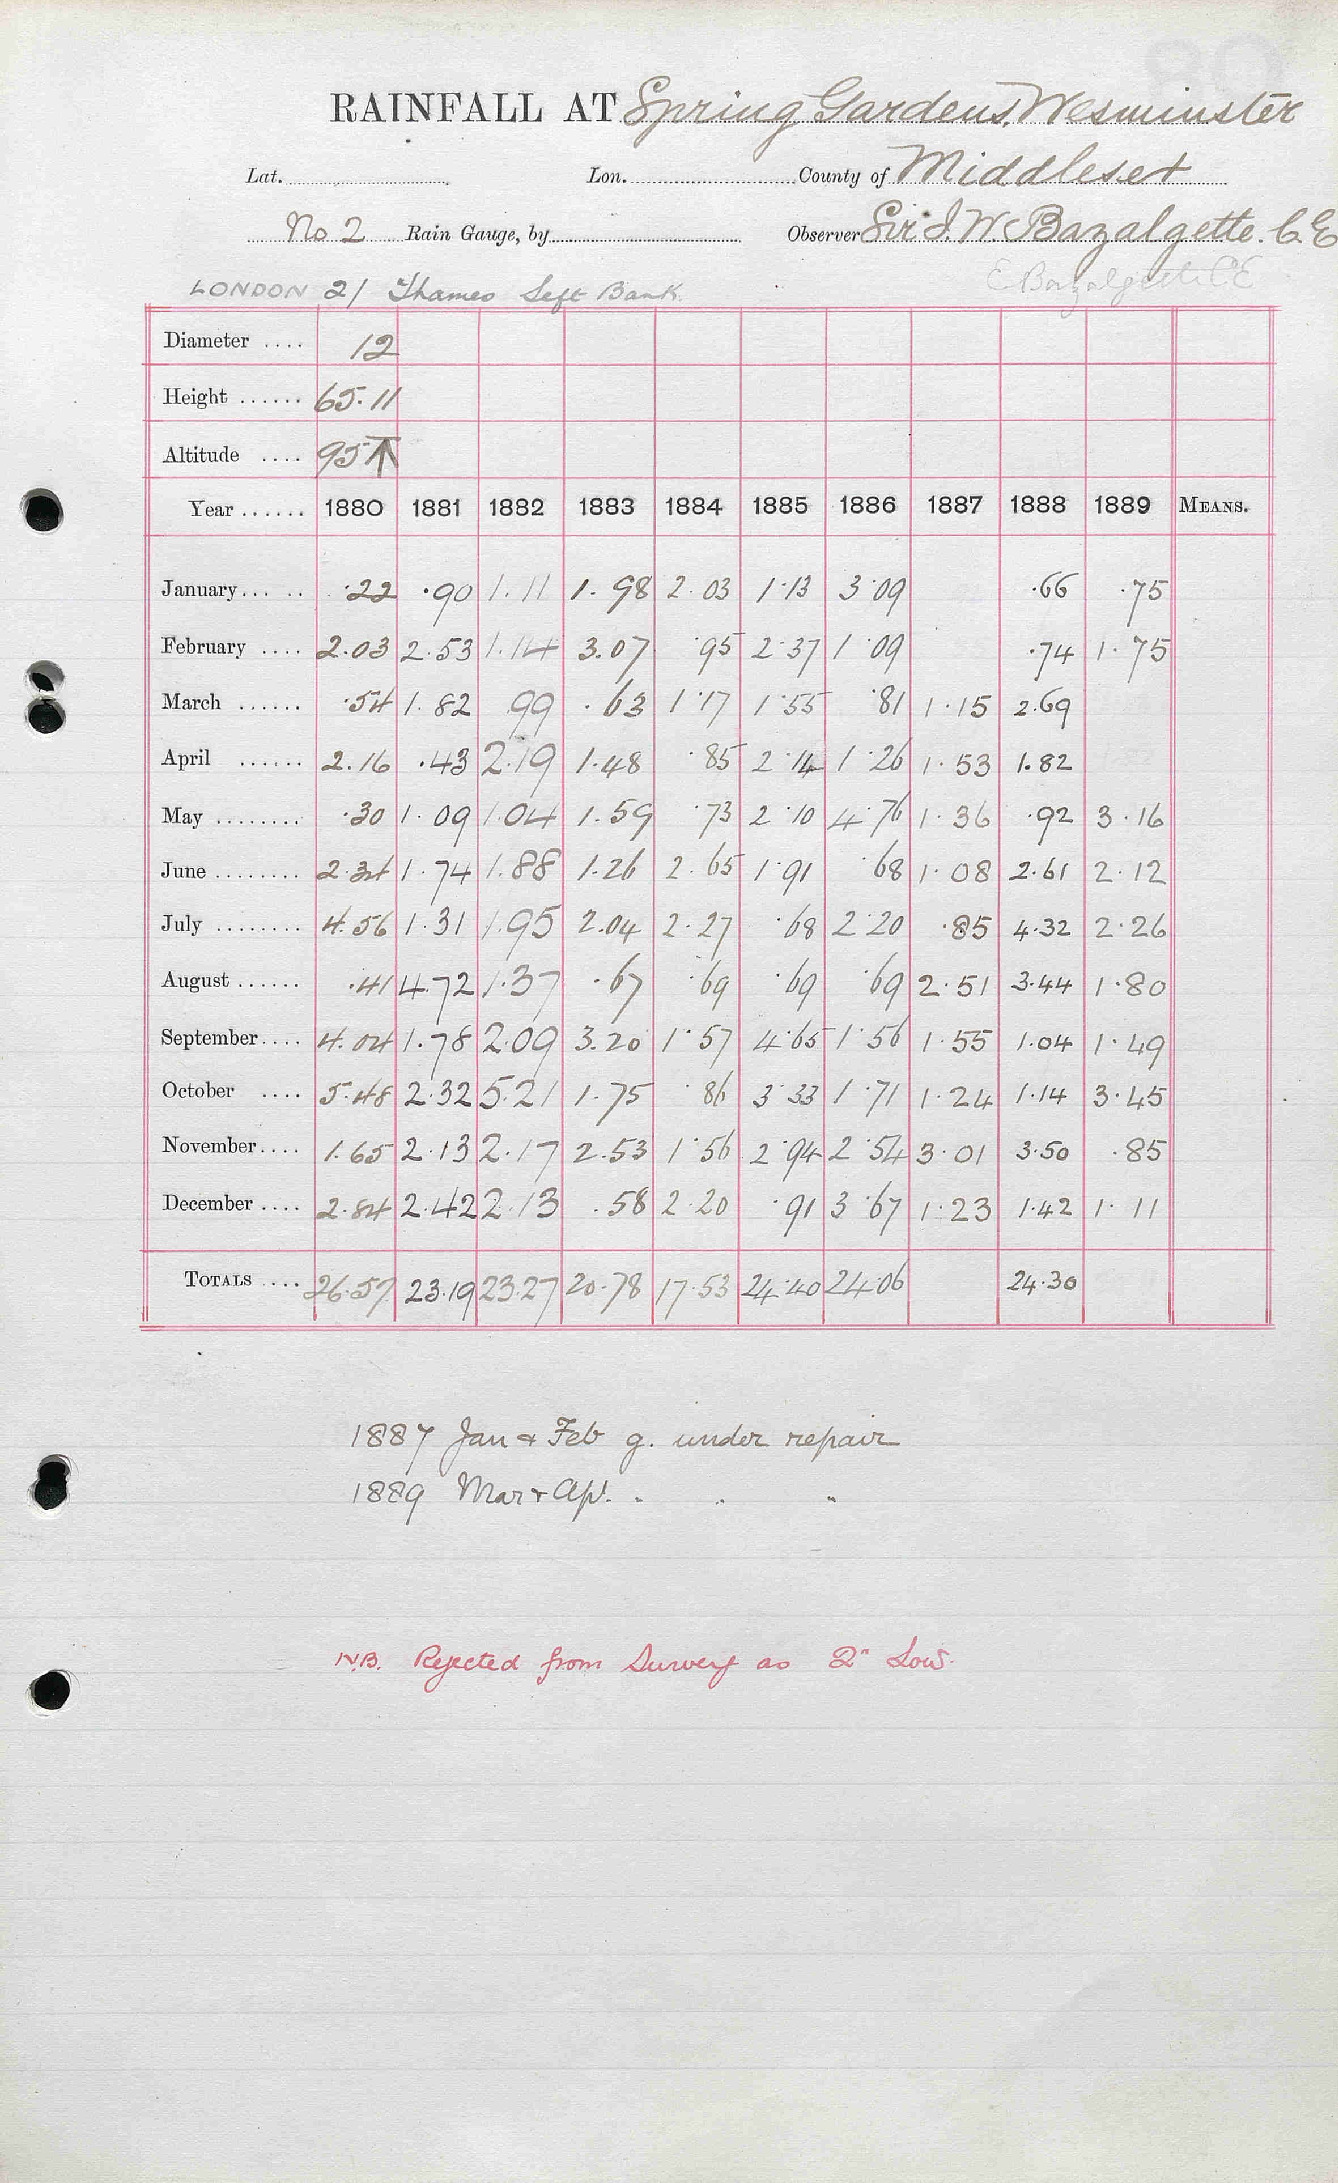 RAINFALL AT Spring Gardens, Wesminster
Lat. Lon. County of Middlesex
No 2 Rain Gauge, by Observer Sir J. W. Bazalgette. C.E
E Bazalgette CE
LONDON 21 Thames Left Bank
Diameter .... 12
Height ...... 65.11
Altitude .... 95 ↑
Year ...... 1880 1881 1882 1883 1884 1885 1886 1887 1888 1889 MEANS.
January ... .. .22 .90 1.11 1.98 2.03 1.13 3.09 .66 .75
February .... 2.03 2.53 1.14 3.07 .95 2.37 1.09 .74 1.75
March ...... .54 1.82 .99 .63 1.17 1.55 .81 1.15 2.69
April ...... 2.16 .43 2.19 1.48 .85 2.14 1.26 1.53 1.82
May ........ .30 1.09 1.04 1.59 .73 2.10 4.76 1.36 .92 3.16
June ........ 2.34 1.74 1.88 1.26 2.65 1.91 .68 1.08 2.61 2.12
July ........ 4.56 1.31 1.95 2.04 2.27 .68 2.20 .85 4.32 2.26
August ...... .41 4.72 1.37 .67 .69 .69 .69 2.51 3.44 1.80
September .... 4.04 1.78 2.09 3.20 1.57 4.65 1.56 1.55 1.04 1.49
October .... 5.48 2.32 5.21 1.75 .86 3.33 1.71 1.24 1.14 3.45
November .... 1.65 2.13 2.17 2.53 1.56 2.94 2.54 3.01 3.50 .85
December .... 2.84 2.42 2.13 .58 2.20 .91 3.67 1.23 1.42 1.11
TOTALS .... 26.57 23.19 23.27 20.78 17.53 24.40 24.06 24.30
1887 Jan & Feb g. under repair
1889 Mar & Apl. " " "
N.B. Rejected from Survey as 2" Low.